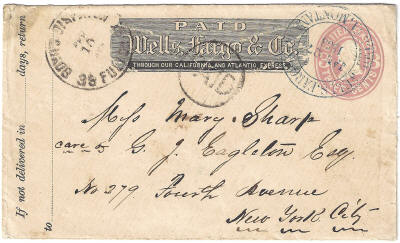 PAID
Wells, Fargo & Co.
THROUGH OUR CALIFORNIA AND ATLANTIC EXPRESS.
If not delivered in days, return
to
Miss Mary Sharp
care of G. J. Eagleton Esq.
No 279 Fourth Avenue
New York City